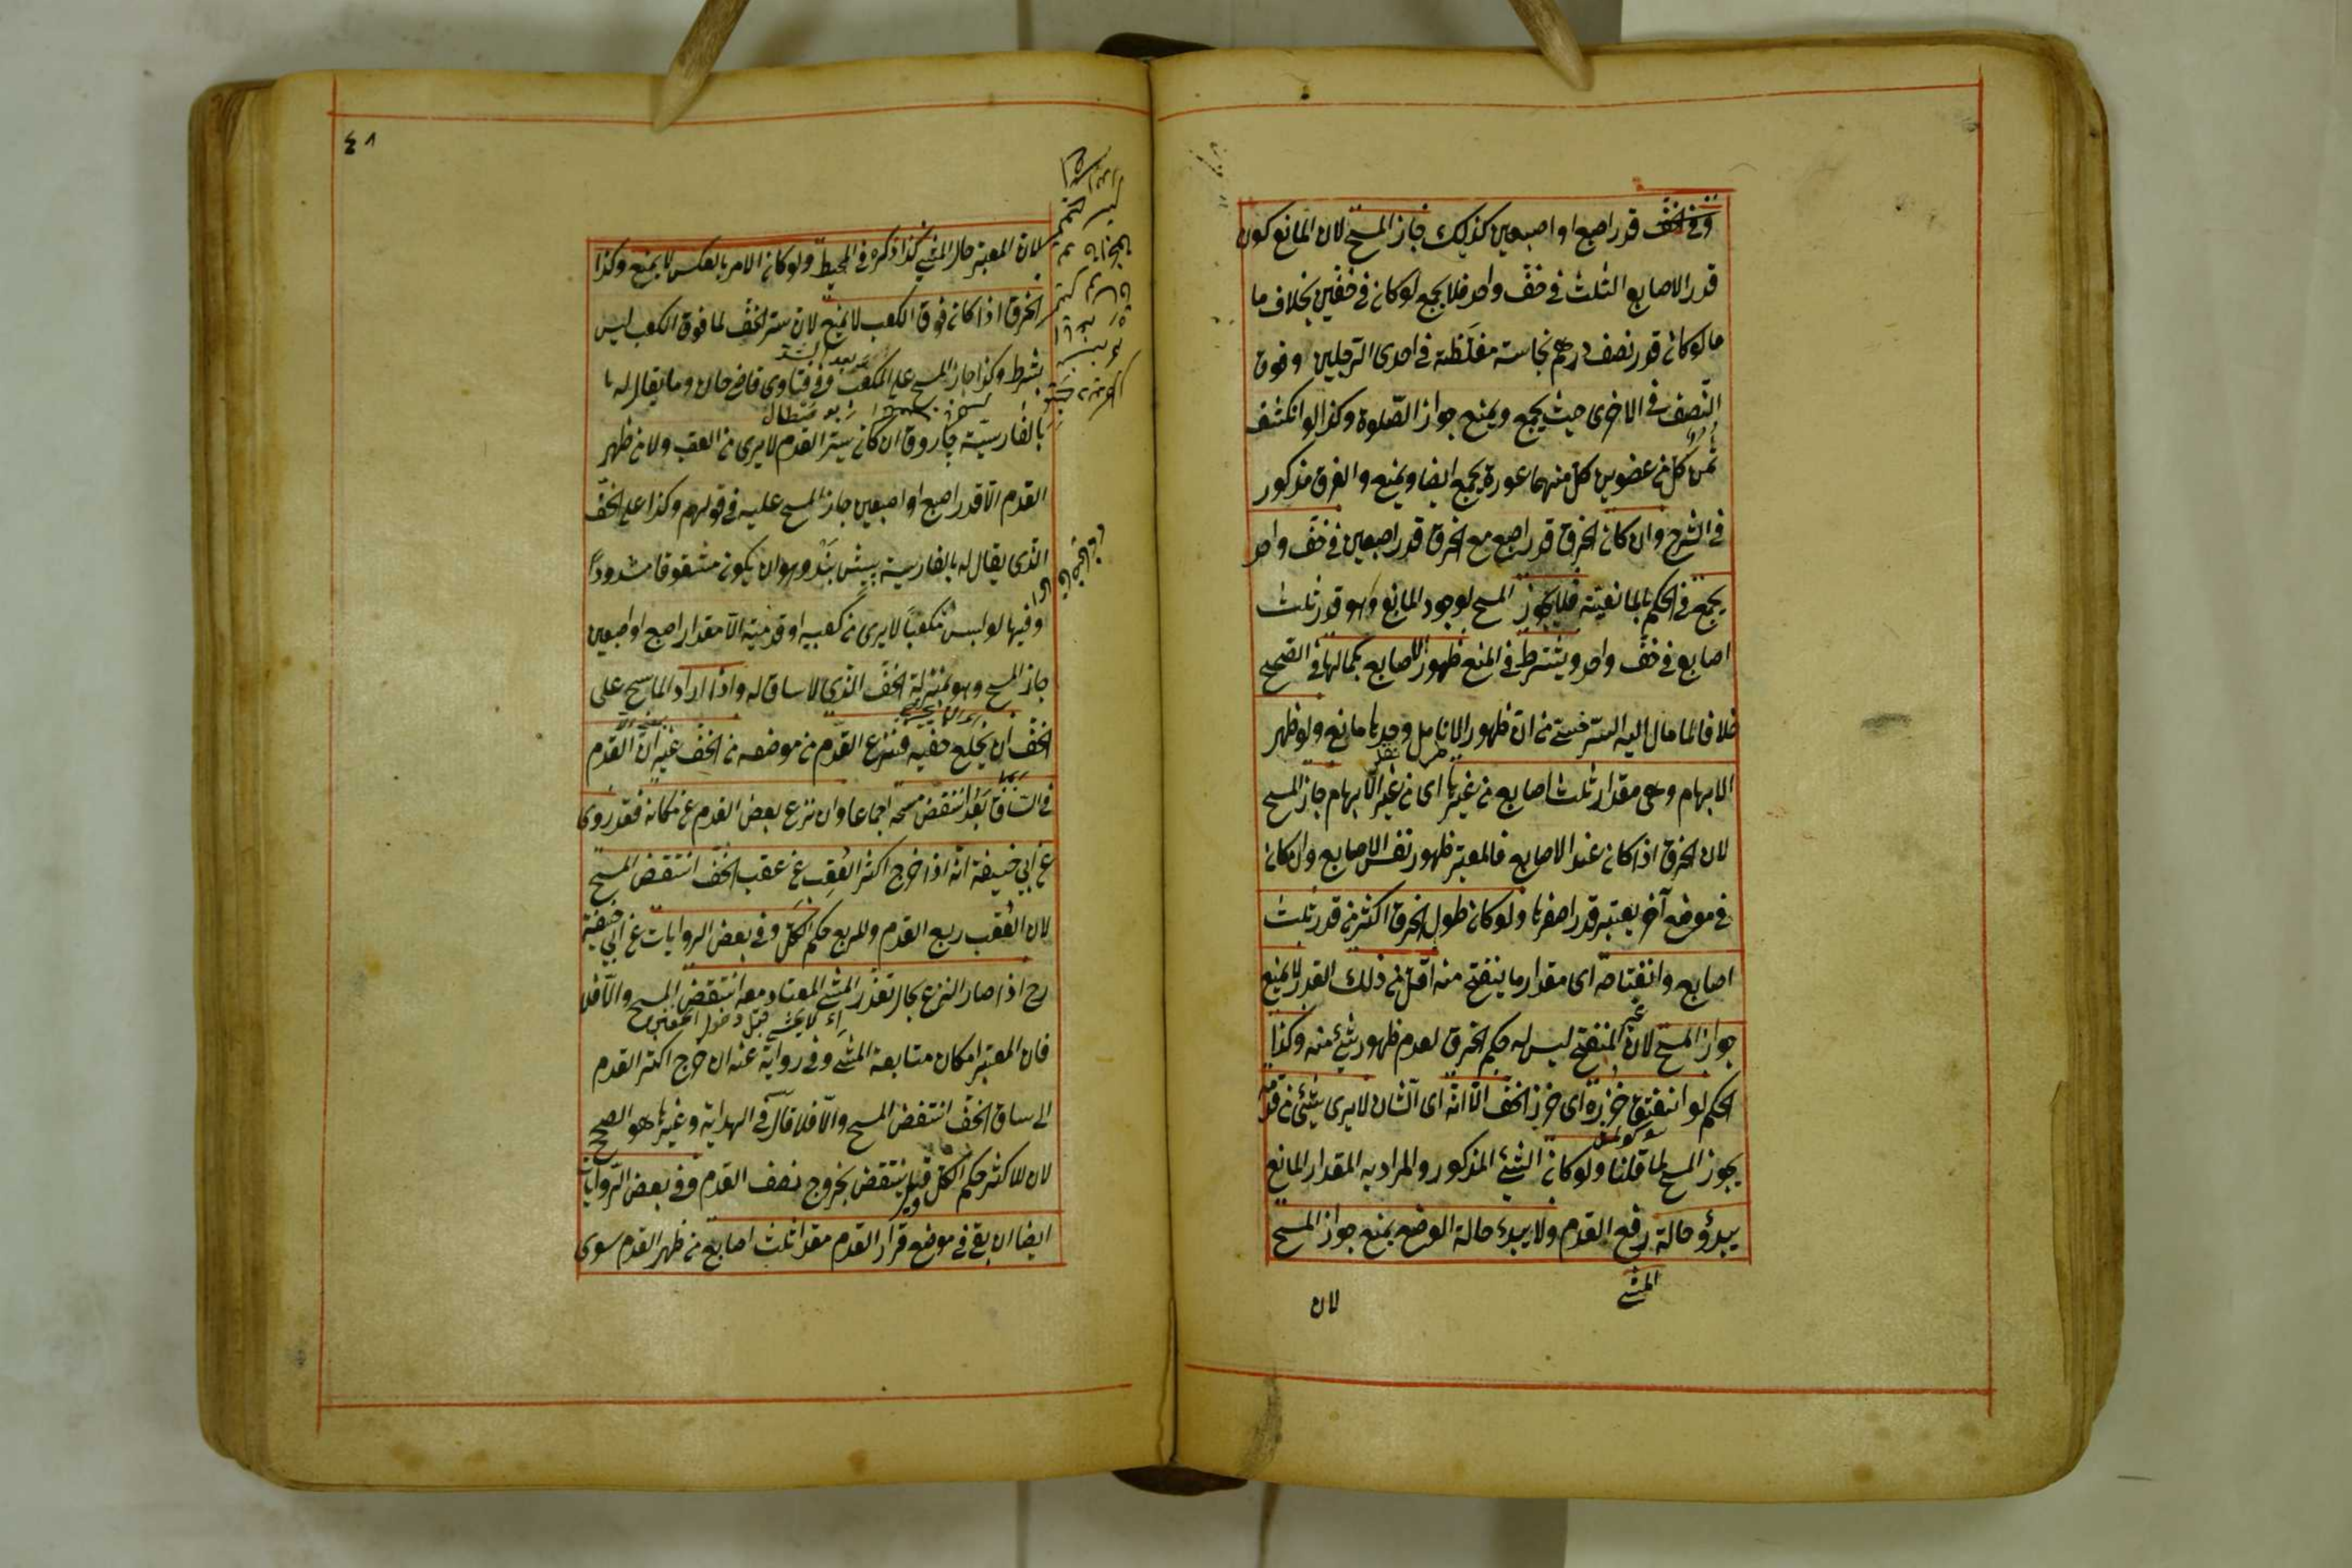 وفى خف قدر اصبع او اصبعين كذلك جاز المسح لان المانع كون
قدر الاصابع الثلث فى خف واحد فلا يجمع لو كان فى خفين بخلاف ما
ما لو كان قدر نصف درهم نجاسة مغلظة فى احدى الرجلين وفوق
النصف فى الاخرى حيث يجمع ويمنع جواز الصلوة وكذا لو انكشف
ثمن كل من عضوين كل منهما عورة يجمع ايضا ويمنع والفرق مذكور
فى الشرح وان كان الخرق قدر اصبع مع الخرق قدر اصبعين فى خف واحد
يجمع فى الحكم بالمانعية فلا يجوز المسح لوجود المانع وهو قدر ثلث
اصابع فى خف واحد ويشترط فى المنع ظهور الاصابع بكمالها فى الصحيح
خلافا لما مال اليه السرخسى من ان ظهور الانامل وحدها مانع ولو ظهر
الابهام وهى مقدار ثلث اصابع من غيرها اى من غير الابهام جاز المسح
لان الخرق اذا كان عند الاصابع فالمعتبر ظهور نفس الاصابع وان كان
فى موضع آخر يعتبر قدر اصغرها ولو كان طول الخرق اكثر من قدر ثلث
اصابع وانفتاحه اى مقدار ما ينفتح منه اقل من ذلك القدر لا يمنع
جواز المسح لان غير المنفتح ليس له حكم الخرق لعدم ظهور شئ منه وكذا
الحكم لو انفتق خرزه اى خرز الخف الا انه اى الشان لا يرى شئ من قدمه
يجوز المسح لما قلنا ولو كان الشئ المذكور والمراد به المقدار المانع
يبدؤ حالة رفع القدم ولا يبدؤ حالة الوضع يمنع جواز المسح
المشى
لان
٤٨
لان المعتبر حال المشى كذا ذكره فى المحيط ولو كان الامر بالعكس لا يمنع وكذا
الخرق اذا كان فوق الكعب لا يمنع لان ستر الخف لما فوق الكعب ليس
بشرط وكذا جاز المسح على المكعب وفى فتاوى قاضى خان وما يقال له
بالفارسية جاروق ان كان يستر القدم لا يرى من العقب ولا من ظهر
القدم الا قدر اصبع او اصبعين جاز المسح عليه فى قولهم وكذا على الخف
الذى يقال له بالفارسية پيش بند وهو ان يكون مشقوقا مشدودا
وفيها لو لبس مكعبا لا يرى من كعبيه او قدميه الا مقدار اصبع او اصبعين
جاز المسح وهو بمنزلة الخف الذى لا ساق له واذا اراد الماسح على
الخف ان يخلع خفيه فنزع القدم من موضعه من الخف غير ان القدم
فى الساق بعد انتقض مسحه اجماعا وان نزع بعض القدم عن مكانه فقد روى
عن ابى حنيفة انه اذا خرج اكثر العقب عن عقب الخف انتقض المسح
لان العقب ربع القدم وللربع حكم الكل وفى بعض الروايات عن ابى حنيفة
رح اذا صار النزع بحال تعذر المشى المعتاد معه انتقض المسح والا فلا
فان المعتبر امكان متابعة المشى وفى رواية عنه ان خرج اكثر القدم
الى ساق الخف انتقض المسح والا فلا قال فى الهداية وغيرها هو الصحيح
لان للاكثر حكم الكل وقيل ينتقض بخروج نصف القدم وفى بعض الروايات
ايضا ان بقى فى موضع قرار القدم مقدار ثلث اصابع من ظهر القدم سوى